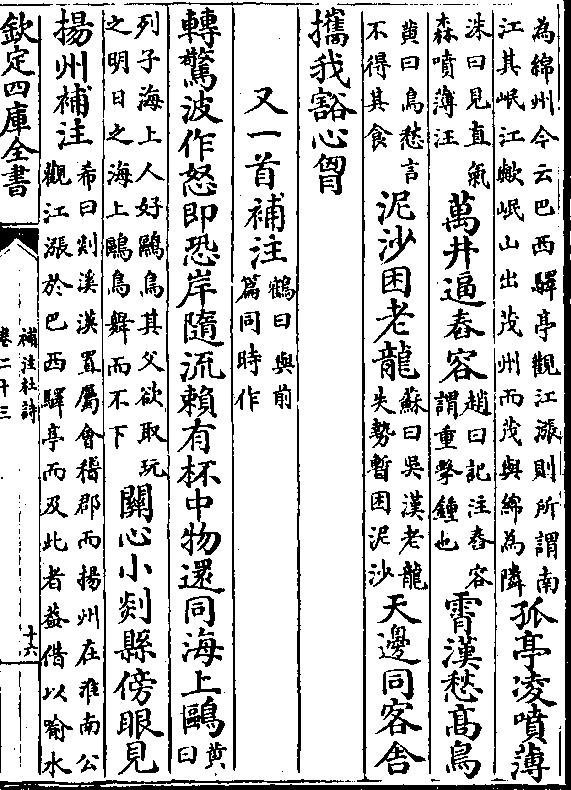 為綿州今云巴西驛亭觀江漲則所謂南
江其岷江歟岷山出茂州而茂與綿為隣
孤亭凌噴薄
洙曰見直氣
森噴薄汪
萬井逼舂容
趙曰記注舂容
謂重擊鍾也
霄漢愁高鳥
黄曰鳥愁言
不得其食
泥沙困老龍
蘇曰吳漢老龍
失勢暫困泥沙
天邊同客舎
攜我豁心胷
又一首補注
鶴曰與前
篇同時作
轉驚波作怒即恐岸隨流賴有杯中物還同海上鷗
黄曰
列子海上人好鷗鳥其父欲取玩
之明日之海上鷗鳥舞而不下
關心小剡縣傍眼見
揚州補注
希曰剡溪漢置屬會稽郡而揚州在淮南公
觀江漲於巴西驛亭而及此者葢借以喻水
欽定四庫全書
補注杜詩
卷二十三
十六